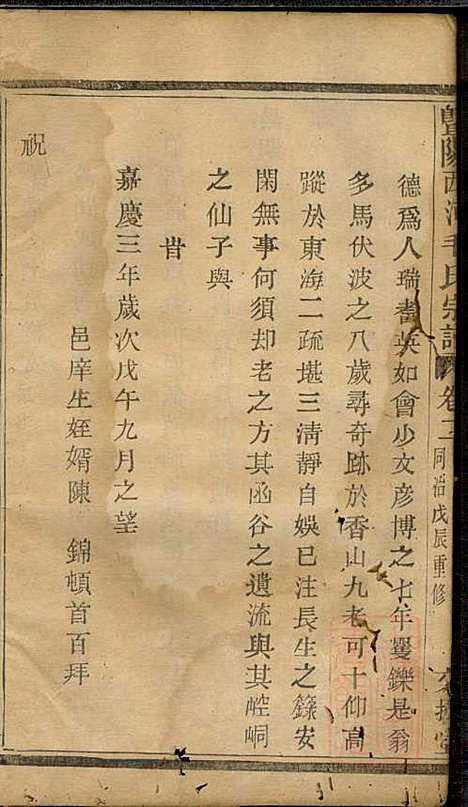 暨陽西河毛氏宗譜 卷二 同治戊辰重修
德爲人瑞耆英如會少文彥博之七年矍鑠是翁
多馬伏波之八歲尋奇跡於香山九老可十仰高
蹤於東海二疏堪三淸靜自娛已注長生之籙安
閑無事何須却老之方其函谷之遺流與其崆峒
之仙子與
旹
嘉慶三年歲次戊午九月之望
邑庠生姪婿陳 錦頓首百拜
祝